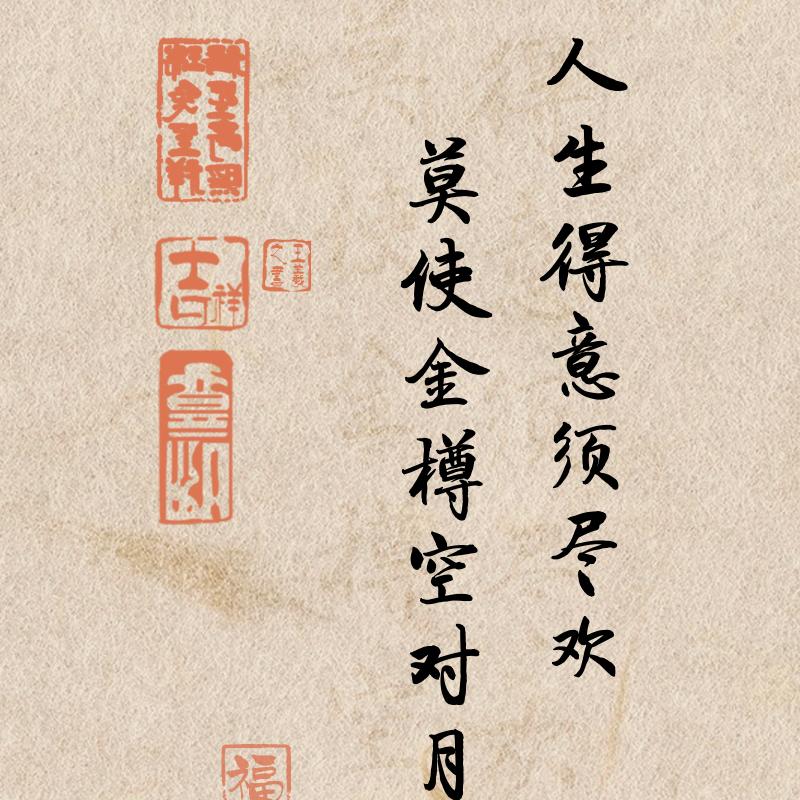 人生得意须尽欢
莫使金樽空对月
吉祥
福